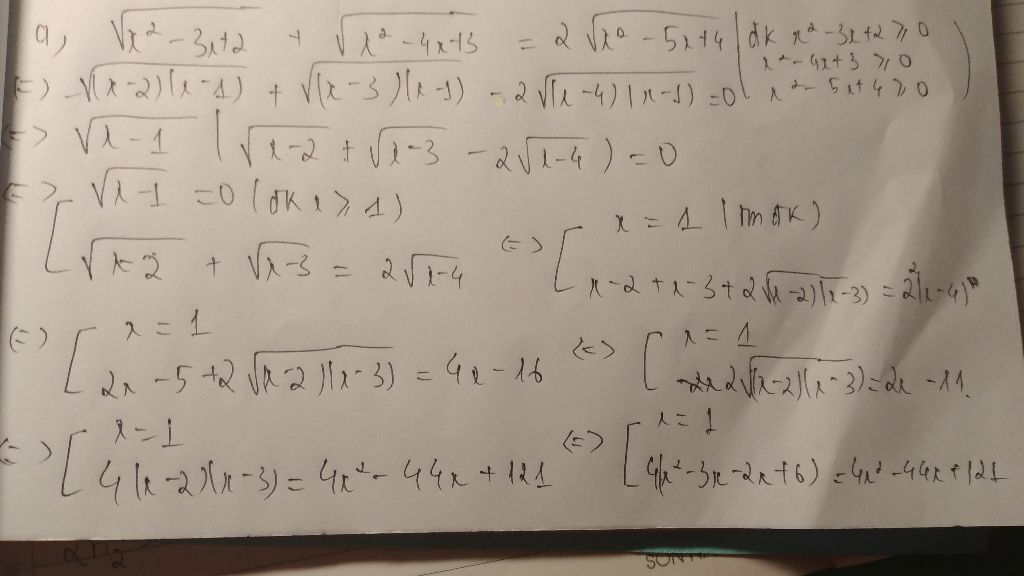 a, √(x² - 3x + 2) + √(x² - 4x + 3) = 2√(x² - 5x + 4) (đk x² - 3x + 2 ≥ 0
x² - 4x + 3 ≥ 0
x² - 5x + 4 ≥ 0)
<=> √((x-2)(x-1)) + √((x-3)(x-1)) - 2√((x-4)(x-1)) = 0
<=> √(x-1) (√(x-2) + √(x-3) - 2√(x-4)) = 0
<=> [ √(x-1) = 0 (đk x ≥ 1)
√(x-2) + √(x-3) = 2√(x-4)
<=> [ x = 1 (tm đk)
x-2 + x-3 + 2√((x-2)(x-3)) = 2²(x-4)
<=> [ x = 1
2x - 5 + 2√((x-2)(x-3)) = 4x - 16
<=> [ x = 1
2√((x-2)(x-3)) = 2x - 11
<=> [ x = 1
4(x-2)(x-3) = 4x² - 44x + 121
<=> [ x = 1
4(x² - 3x - 2x + 6) = 4x² - 44x + 121